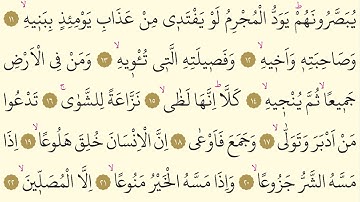 يُبَصَّرُونَهُمْۜ يَوَدُّ الْمُجْرِمُ لَوْ يَفْتَد۪ي مِنْ عَذَابِ يَوْمِئِذٍ بِبَن۪يهِۙ ﴿١١﴾
وَصَاحِبَتِه۪ وَاَخ۪يهِۙ ﴿١٢﴾ وَفَص۪يلَتِهِ الَّت۪ي تُـْٔو۪يهِۙ ﴿١٣﴾ وَمَنْ فِي الْاَرْضِ
جَم۪يعاًۙ ثُمَّ يُنْج۪يهِۙ ﴿١٤﴾ كَلَّاۜ اِنَّهَا لَظٰىۙ ﴿١٥﴾ نَزَّاعَةً لِلشَّوٰىۚ ﴿١٦﴾ تَدْعُوا
مَنْ اَدْبَرَ وَتَوَلّٰىۙ ﴿١٧﴾ وَجَمَعَ فَاَوْعٰى ﴿١٨﴾ اِنَّ الْاِنْسَانَ خُلِقَ هَلُوعاًۙ ﴿١٩﴾ اِذَا
مَسَّهُ الشَّرُّ جَزُوعاًۙ ﴿٢٠﴾ وَاِذَا مَسَّهُ الْخَيْرُ مَنُوعاًۙ ﴿٢١﴾ اِلَّا الْمُصَلّ۪ينَۙ ﴿٢٢﴾